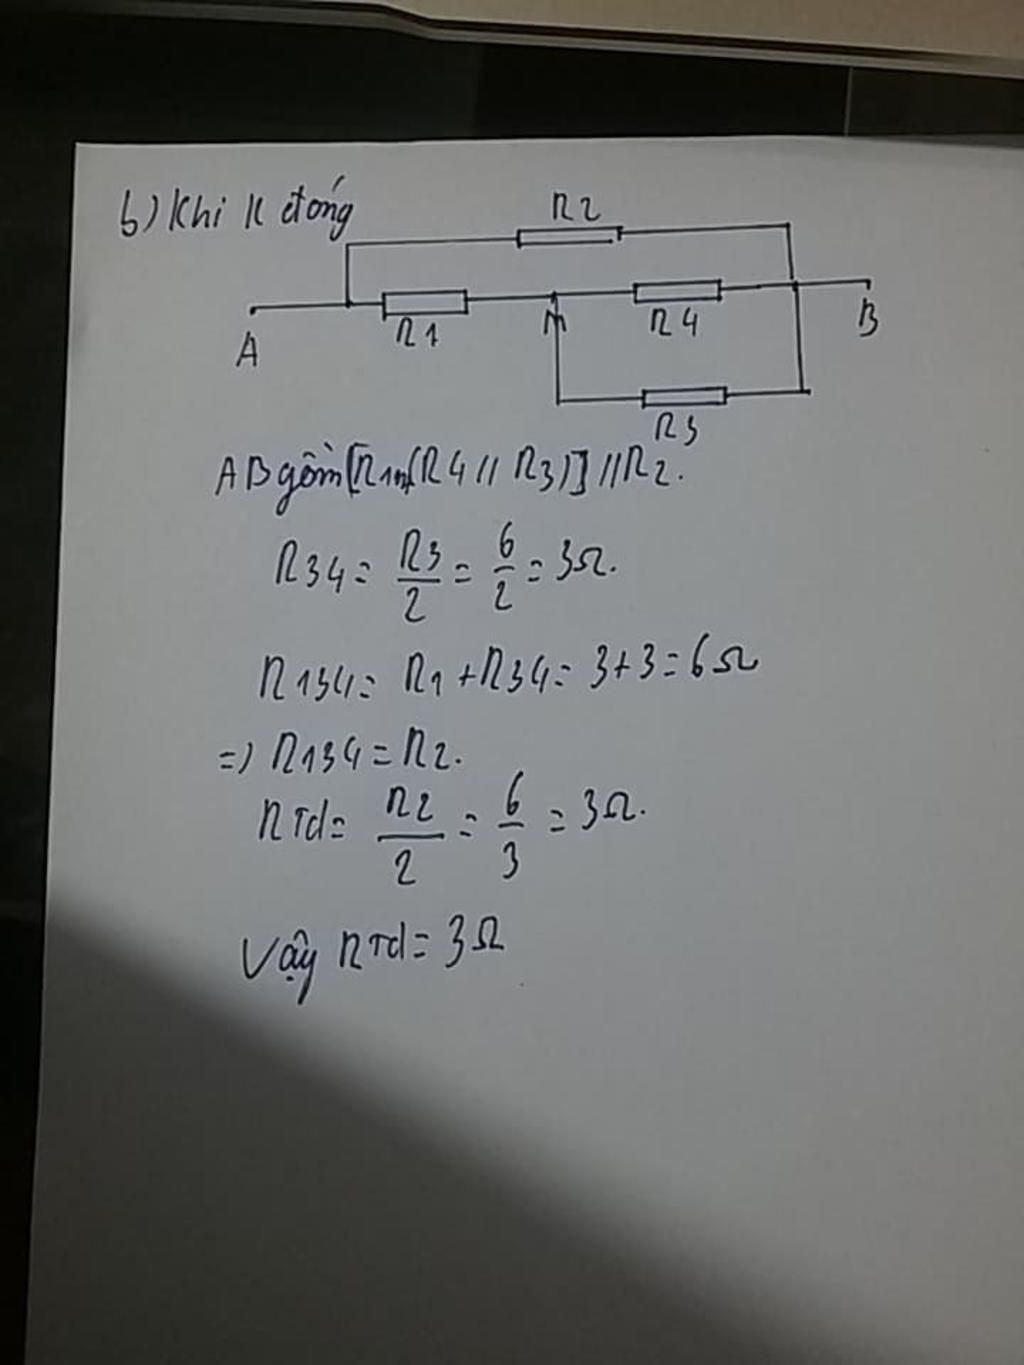 b) Khi K đóng
R2
A R1 M R4 B
R3
AB gồm [R1nt(R4 // R3)] // R2.
R34 = R3/2 = 6/2 = 3Ω.
R134 = R1 + R34 = 3 + 3 = 6Ω
=) R134 = R2.
RTd = R2/2 = 6/3 = 3Ω.
Vậy RTd = 3Ω